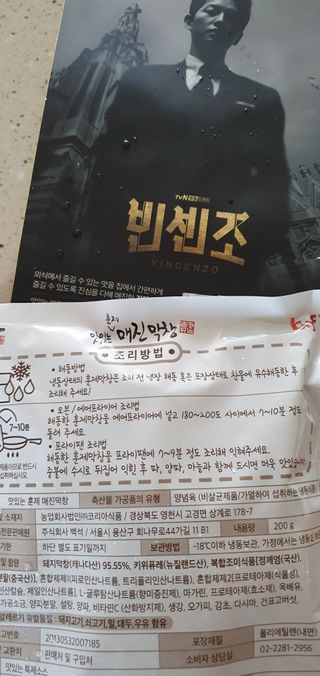 tvN
빈센조
VINCENZO
외식에서 즐길 수 있는 맛을 집에서 간편하게
즐길 수 있도록 진심을 다해 매진한
훈제
맛있는 매진막창
조리방법
• 해동방법
냉동상태의 훈제막창은 조리 전 냉장 해동 혹은 포장상태로 찬물에 유수해동한 후
조리해 주세요!
• 오븐/에어프라이어 조리법
해동한 훈제막창을 에어프라이어에 넣고 180~200도 사이에서 7~10분 정도
돌려 주세요.
7~10분
• 프라이팬 조리법
해동한 훈제막창을 프라이팬에 7~9분 정도 조리해 익혀주세요.
중불에 수시로 뒤집어 익힌 후 파, 양파, 마늘과 함께 드시면 더욱 맛있습니다
맛있는 훈제 매진막창 축산물 가공품의 유형 양념육 (비살균제품/가열하여 섭취하는 냉동식품)
및 소재지 농업회사법인㈜코리아식품 / 경상북도 영천시 고경면 상계로 178-7
전문판매원 주식회사 백석 / 서울시 용산구 회나무로44가길 11 B1 내용량 200 g
기한 하단 별도 표기일까지 보관방법 -18℃이하 냉동보관, 가정에서는 냉동실
및 함량 돼지막창(캐나다산) 95.55%, 키위퓨레(뉴질랜드산), 복합조미식품[정제염(국산),
분말(중국산)], 혼합제제1(피로인산나트륨, 트리폴리인산나트륨), 혼합제제2[프로테아제(식물성),
인산칼슘, 제일인산나트륨], L-글루탐산나트륨(향미증진제), 마가린, 프로테아제(효소제), 옥배유,
가공소금, 양파분말, 설탕, 양파, 비타민C (산화방지제), 생강, 오가피, 감초, 다시마, 건표고버섯,
알레르기 유발물질 돼지고기,쇠고기,밀,대두,우유 함유
고번호 20130532007185 포장재질 폴리에틸렌(내면)
교환처 판매처 및 구입처 소비자 상담실 02-2281-2956
맛있는 특제소스